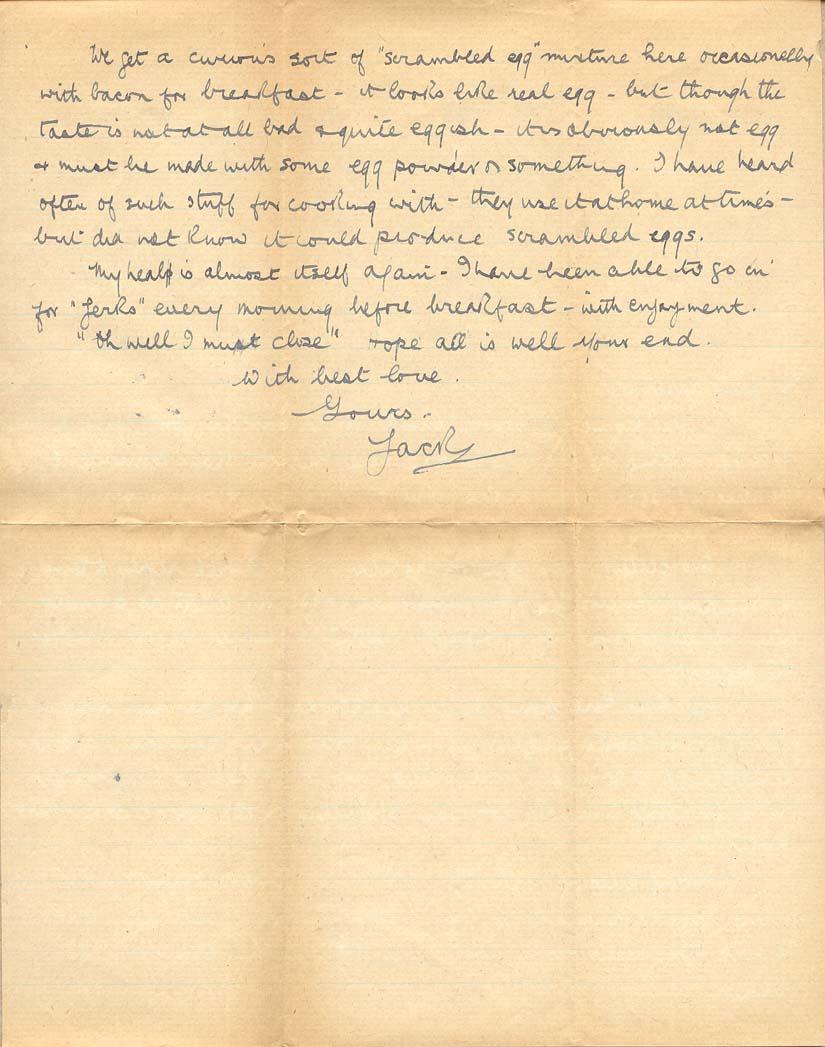 We get a curious sort of "scrambled egg" mixture here occasionally
with bacon for breakfast - it looks like real egg - but though the
taste is not at all bad & quite eggish - it is obviously not egg
& must be made with some egg powder or something. I have heard
often of such stuff for cooking with - they use it at home at times -
but did not know it could produce scrambled eggs.
My is almost itself again - I have been able to go in
for "Jerks" every morning before breakfast - with enjoyment.
"Oh well I must close" all is well your end.
With best love.
Yours.
Jack